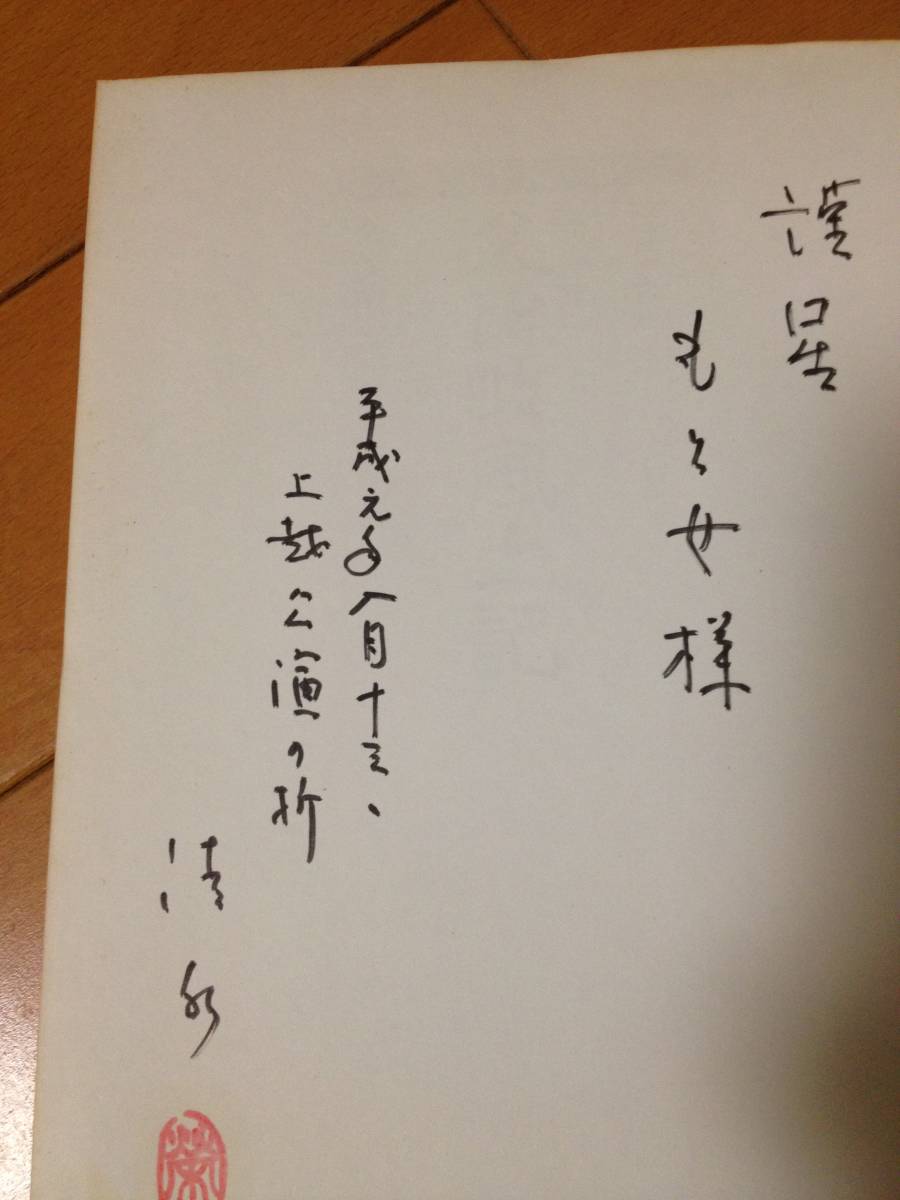 謹呈
も 女様
平成元年八月十三、
上越公演の折
清水
榮